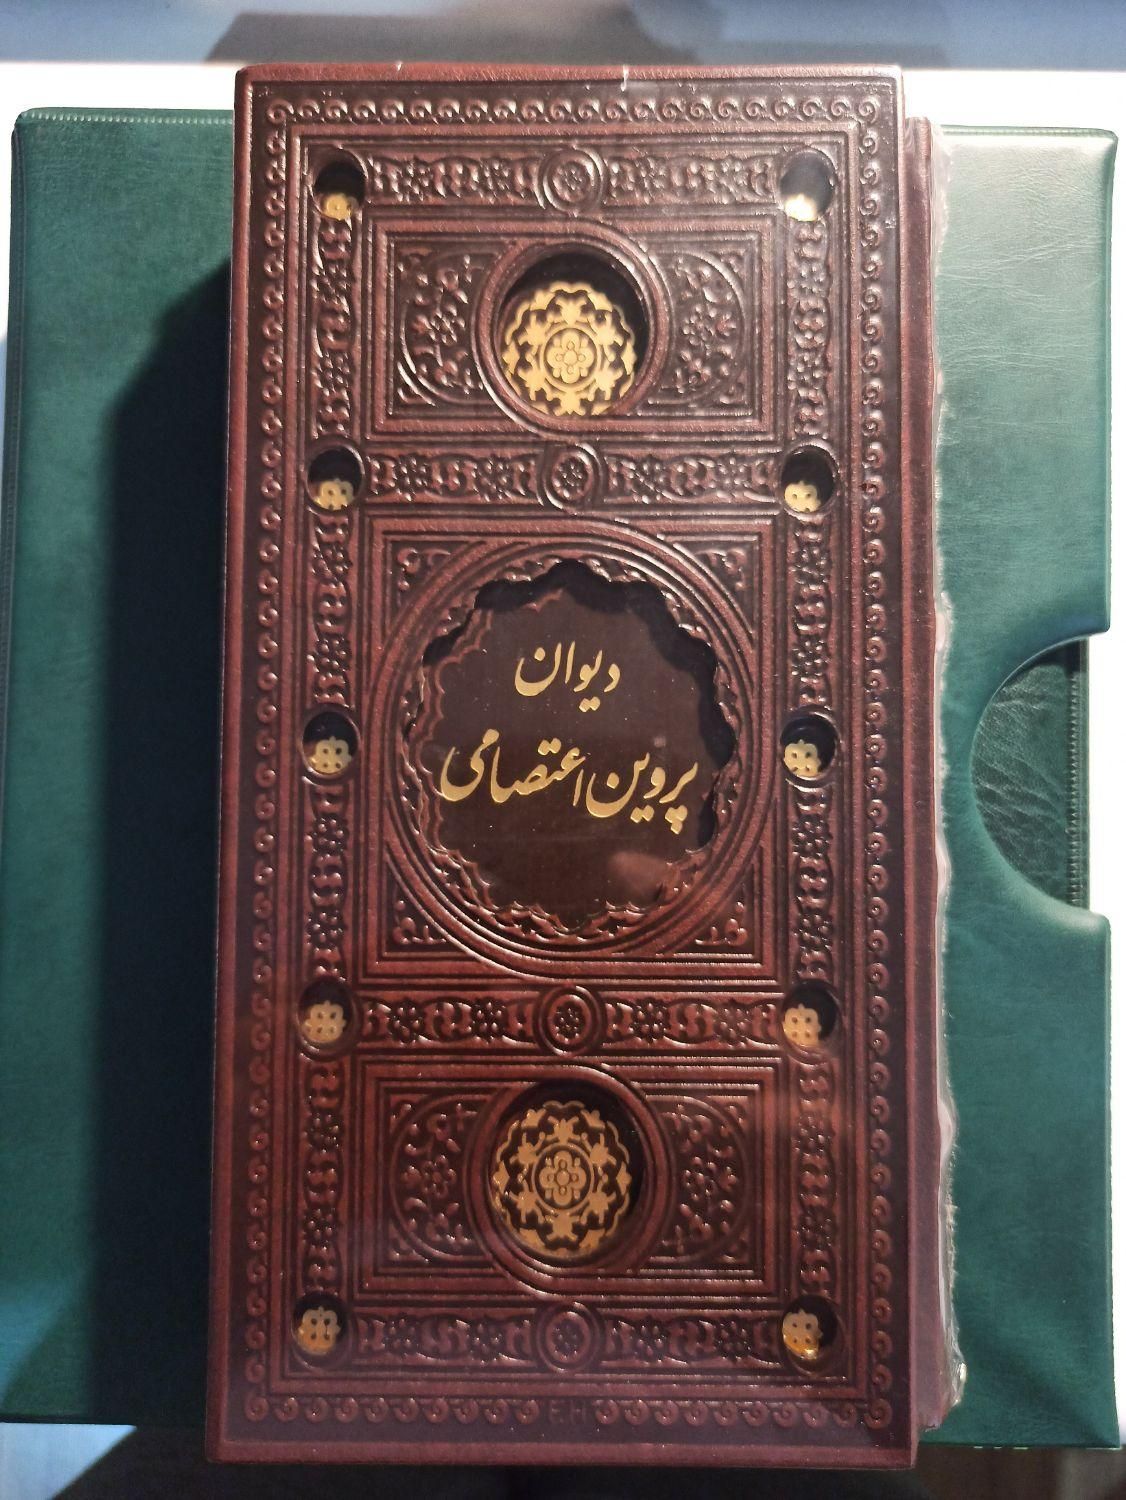 دیوان
پروین اعتصامی
EH